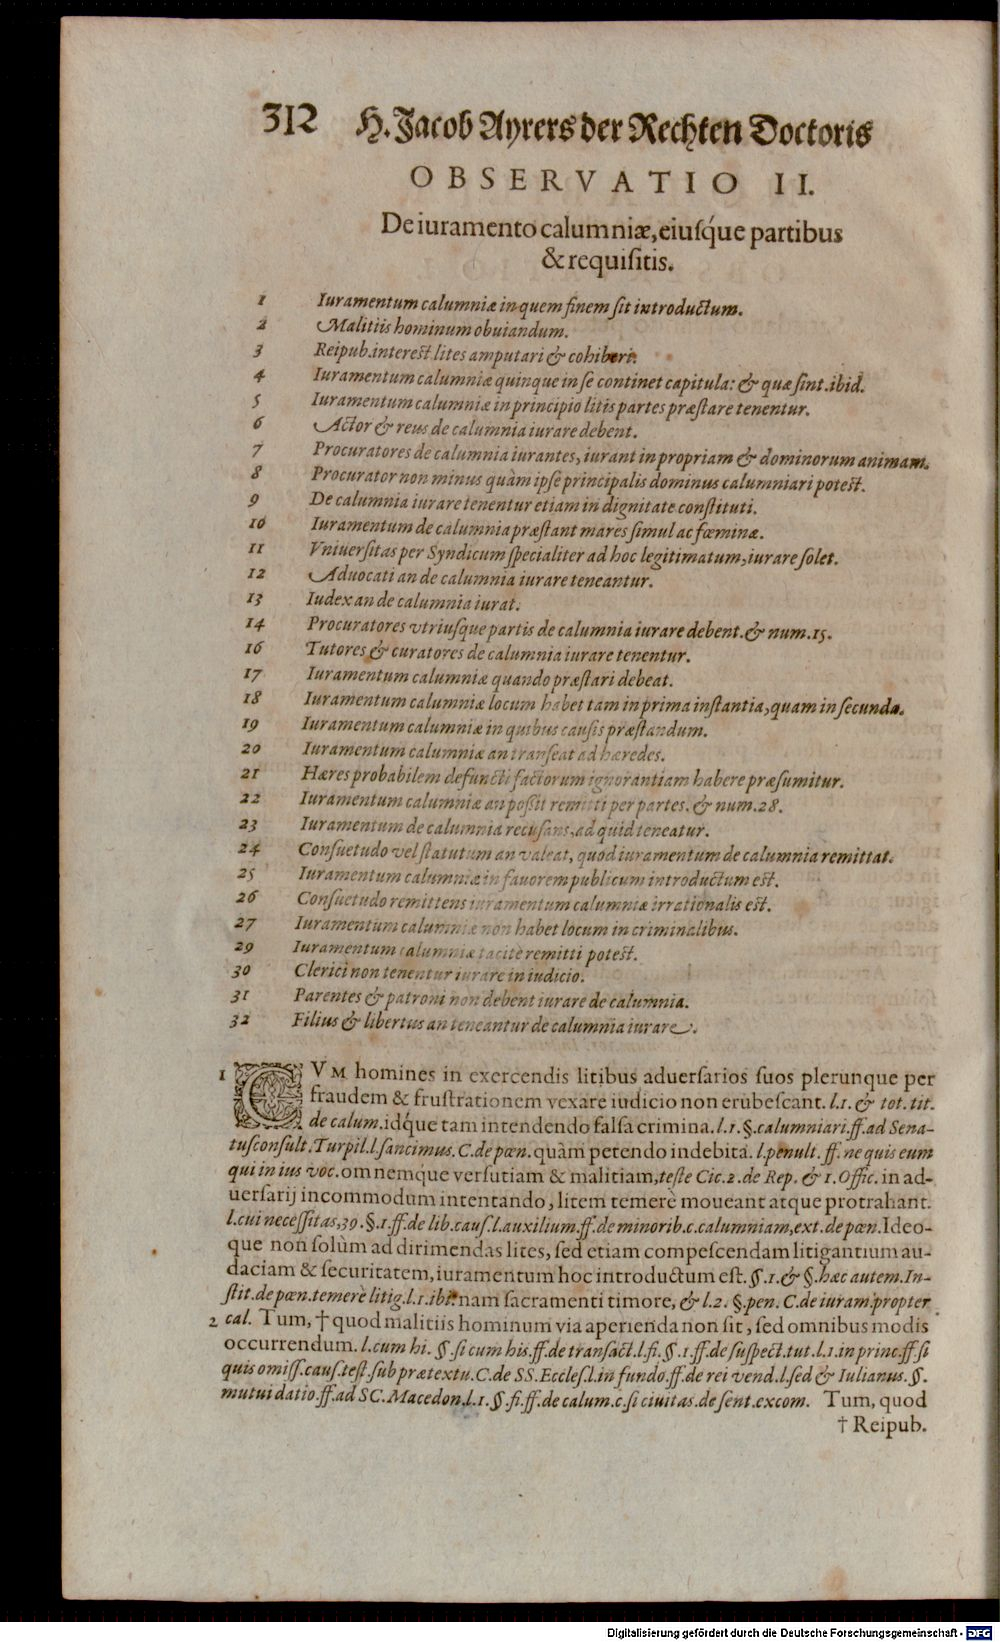 312 H. Jacob Ayrers der Rechten Doctoris
OBSERVATIO II.
De iuramento calumniæ, eiusq́ue partibus
& requisitis.
1 Iuramentum calumniæ in quem finem sit introductum.
2 Malitiis hominum obuiandum.
3 Reipub. interest lites amputari & cohiberi.
4 Iuramentum calumniæ quinque in se continet capitula: & quæ sint. ibid.
5 Iuramentum calumniæ in principio litis partes præstare tenentur.
6 Actor & reus de calumnia iurare debent.
7 Procuratores de calumnia iurantes, iurant in propriam & dominorum animam.
8 Procurator non minus quàm ipse principalis dominus calumniari potest.
9 De calumnia iurare tenentur etiam in dignitate constituti.
10 Iuramentum de calumnia præstant mares simul ac fœminæ.
11 Vniuersitas per Syndicum specialiter ad hoc legitimatum, iurare solet.
12 Aduocati an de calumnia iurare teneantur.
13 Iudex an de calumnia iurat.
14 Procuratores vtriusque partis de calumnia iurare debent. & num. 15.
16 Tutores & curatores de calumnia iurare tenentur.
17 Iuramentum calumniæ quando præstari debeat.
18 Iuramentum calumniæ locum habet tam in prima instantia, quam in secunda.
19 Iuramentum calumniæ in quibus causis præstandum.
20 Iuramentum calumniæ an transeat ad hæredes.
21 Hæres probabilem defuncti factorum ignorantiam habere præsumitur.
22 Iuramentum calumniæ an possit remitti per partes. & num. 28.
23 Iuramentum de calumnia recusans, ad quid teneatur.
24 Consuetudo vel statutum an valeat, quod iuramentum de calumnia remittat.
25 Iuramentum calumniæ in fauorem publicum introductum est.
26 Consuetudo remittens iuramentum calumniæ irrationalis est.
27 Iuramentum calumniæ non habet locum in criminalibus.
29 Iuramentum calumniæ tacitè remitti potest.
30 Clerici non tenentur iurare in iudicio.
31 Parentes & patroni non debent iurare de calumnia.
32 Filius & libertus an teneantur de calumnia iurare.
1 CVM homines in exercendis litibus aduersarios suos plerunque per
fraudem & frustrationem vexare iudicio non erubescant. l. 1. & tot. tit.
de calum. idq́ue tam intendendo falsa crimina. l. 1. §. calumniari. ff. ad Sena-
tusconsult. Turpil. l. sancimus. C. de pœn. quàm petendo indebita. l. penult. ff. ne quis eum
qui in ius voc. omnemq́ue versutiam & malitiam, teste Cic. 2. de Rep. & 1. Offic. in ad-
uersarij incommodum intentando, litem temerè moueant atque protrahant.
l. cui necessitas, 39. §. 1. ff. de lib. caus. l. auxilium. ff. de minorib. c. calumniam, ext. de pœn. Ideo-
que non solùm ad dirimendas lites, sed etiam compescendam litigantium au-
daciam & securitatem, iuramentum hoc introductum est. §. 1. & §. hæc autem. In-
stit. de pœn. temerè litig. l. 1. ibi: nam sacramenti timore, & l. 2. §. pen. C. de iuram. propter
2 cal. Tum, † quod malitiis hominum via aperienda non sit, sed omnibus modis
occurrendum. l. cum hi. §. si cum his. ff. de transact. l. fi. §. 1. ff. de suspect. tut. l. 1. in princ. ff. si
quis omiss. caus. test. sub prætextu. C. de SS. Eccles. l. in fundo. ff. de rei vend. l. sed & Iulianus. §.
mutui datio. ff. ad SC. Macedon. l. 1. §. fi. ff. de calum. c. si ciuitas. de sent. excom. Tum, quod
† Reipub.
Digitalisierung gefördert durch die Deutsche Forschungsgemeinschaft - DFG